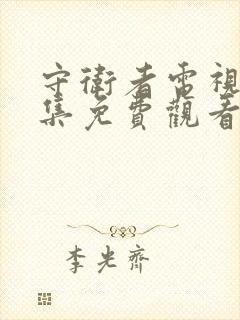 守衛者電視
集免費觀看
李光齊